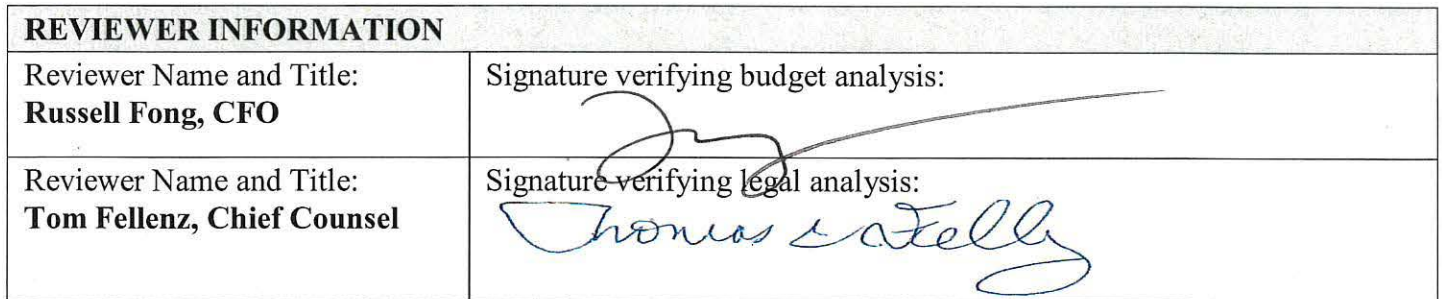 REVIEWER INFORMATION
Reviewer Name and Title:
Russell Fong, CFO
Signature verifying budget analysis:
Reviewer Name and Title:
Tom Fellenz, Chief Counsel
Signature verifying legal analysis:
Thomas